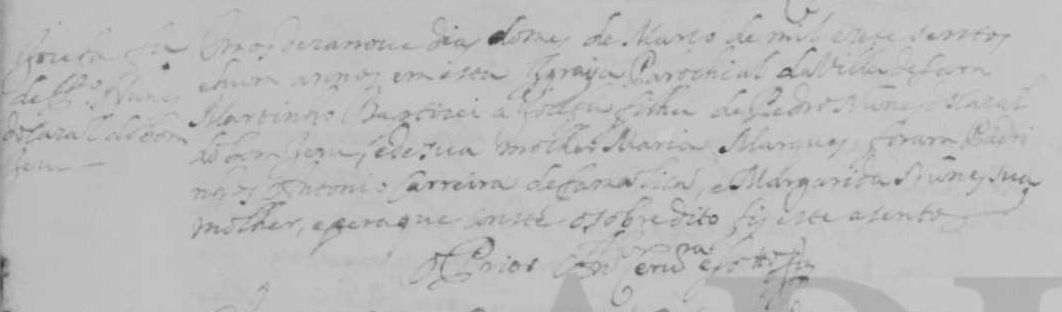 Josefa fa
de Po Nunes
do Casal do bom
Jesu
Em os dezanoue dias do mes de Março de mil e sete sentos
e hum annos em esta Igreija Parochial da Villa de Sam
Martinho Baptizei a Josefa filha de Pedro Nunes do Casal
do bom Jesu, e de sua molher Maria Marques, foram Padri
nhos Antonio Carreira de Famalicã, e Margarida Nunes sua
molher, e pera que conste o sobredito fis este asento
O Prior